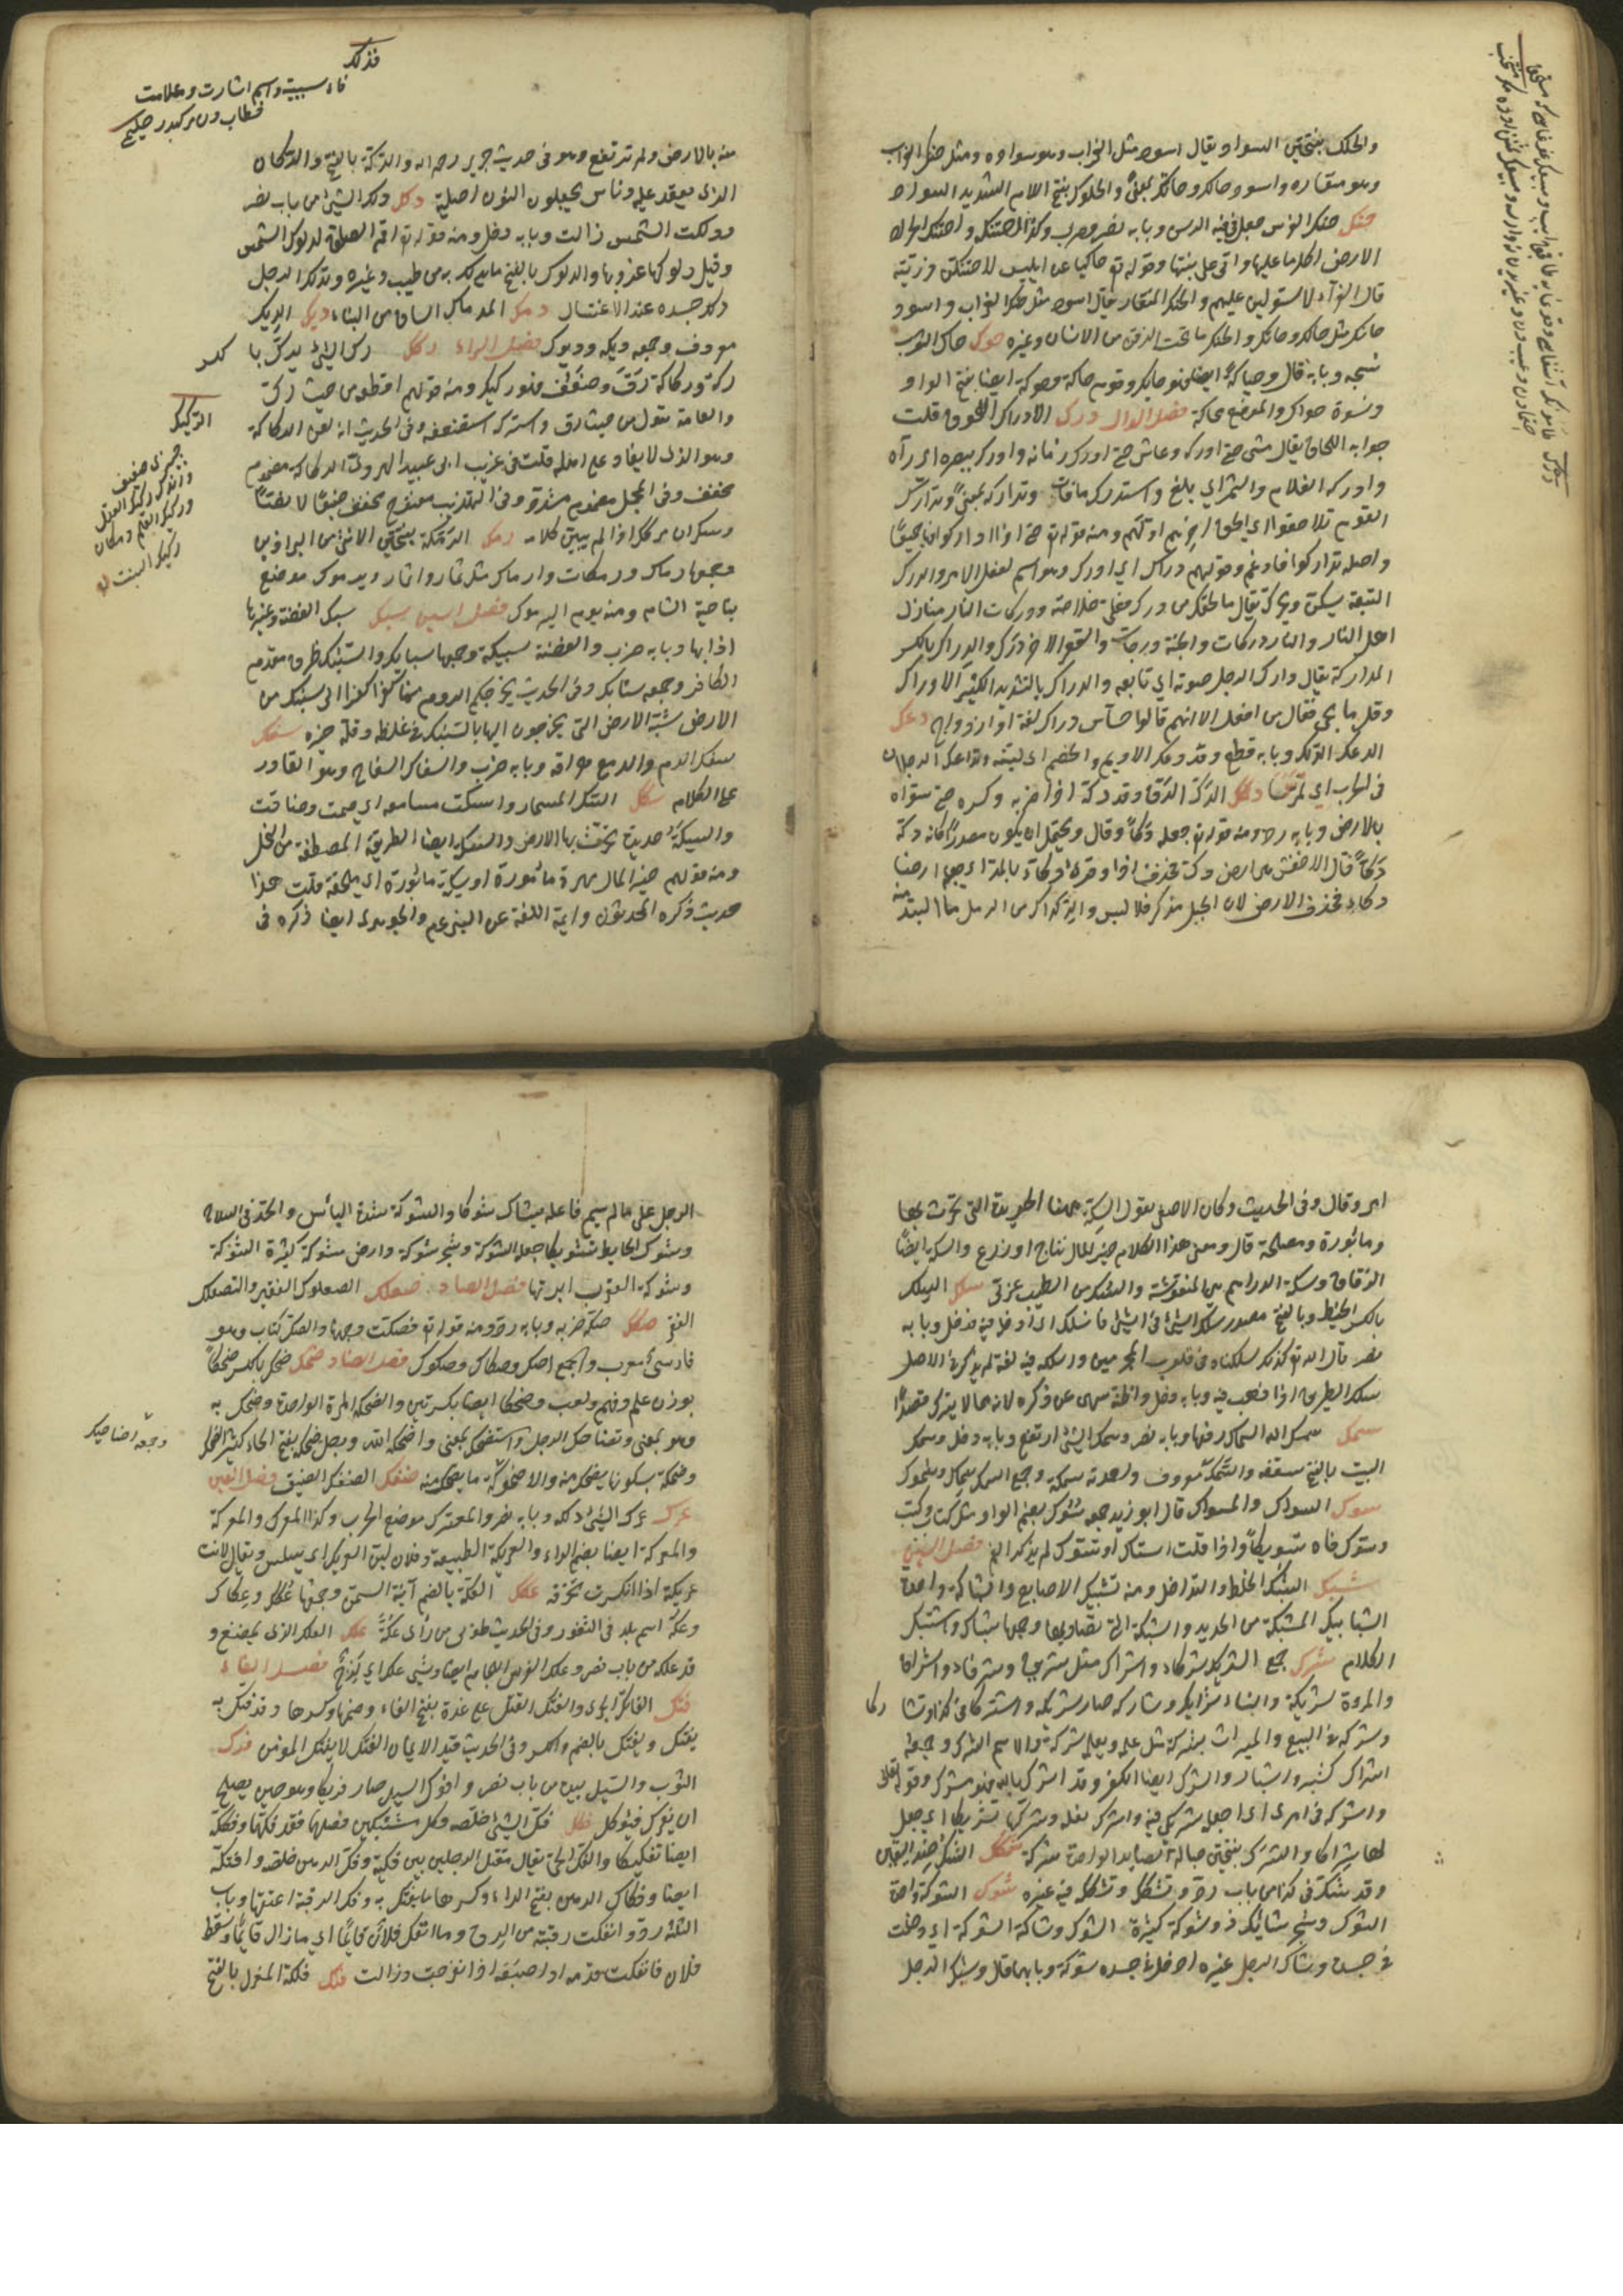 والحلك بفتحتين السواد يقال اسود مثل حلك الغراب وهو سواده ومثل حنك الغراب
وهو منقاره واسود حالك وحانك بمعنى والحلكوك بفتح اللام الشديد السواد
حنك حنك الفرس جعل في فيه الرسن وبابه نصر وضرب وكذا احتنكه واحتنك الجراد
الارض اكل ما عليها واتى على نبتها وقوله تع حاكيا عن ابليس لاحتنكن ذريته
قال الفراء لاستولين عليهم والحنك المنقار يقال اسود مثل حنك الغراب واسود
حانك مثل حالك والحنك ما تحت الذقن من الانسان وغيره حوك حاك الثوب
نسجه وبابه قال وحياكة ايضا فهو حايك وقوم حاكة وحوكة ايضا بفتح الواو
ونسوة حوايك والموضع محاكة فصل الدال درك الادراك اللحوق قلت
صوابه اللحاق يقال مشى حتى ادركه وعاش حتى ادرك زمانه وادركه ببصره اى رآه
وادرك الغلام والثمر اي بلغ واستدرك ما فات وتداركه بمعنى وتدارك
القوم تلاحقوا اي لحق اخرهم اولهم ومنه قوله تع حتى اذا اداركوا فيها جميعا
واصله تداركوا فادغم وقولهم دراك اي ادرك وهو اسم لفعل الامر والدرك
التبعة يسكن ويحرك يقال ما لحقك من درك فعلي خلاصه ودركات النار منازل
اهل النار والنار دركات والجنة درجات والقعر الاخر درك والدراك بالكسر
المداركة يقال دارك الرجل صوته اي تابعه والدراك بالتشديد الكثير الادراك
وقل ما يجئ فعال من افعل الا انهم قالوا حساس دراك لغة او ازدواج دعك
الدعك الدلك وبابه قطع وقد دعك الاديم والخصم اى لينه وتداعك الرجلان
في الحرب اي تمرسا دكك الدك الدق وقد دكه اذا ضربه وكسره حتى سواه
بالارض وبابه رد ومنه قوله تع جعله دكا وقال ويحتمل ان يكون مصدرا كانه دكه
دكا قال الاخفش هى ارض دك فحذف ذا وقرئ دكاء بالمد اى جعله ارضا
دكاء فحذف الارض لان الجبل مذكر فلا لبس والدكداك من الرمل ما التبد منه
فذلك
فاء سببية واسم اشارت وعلامت
منه بالارض ولم يرتفع وهو فى حديث جرير رحمه الله والدكة بالفتح والدكان
الذى يقعد عليه وناس يجعلون النون اصلية دلك دلك الشيئ من باب نصر
ودلكت الشمس زالت وبابه دخل ومنه قوله تع اقم الصلوة لدلوك الشمس
وقيل دلوكها غروبها والدلوك بالفتح ما يدلك به من طيب وغيره وتدلك الرجل
دلك جسده عند الاغتسال دمك المدماك الساق من البناء ديك الديك
معروف وجمعه ديكة وديوك فصل الراء ركك رك الشئ يرك بالكسر
ركة وركاكة رق وضعف فهو ركيك ومنه قولهم اقطعه من حيث رك
والعامة تقول من حيث رق واستركه استضعفه وفى الحديث انه لعن الركاكة
وهو الذى لا يغار على اهله قلت فى غريب ابى عبيد الهروى الركاكة مضموم
مخفف وفى المجمل مضموم مشدد وفى التهذيب مفتوح مخفف ضبطا لا نصا
وسكران مرتك اذا لم يبين كلامه رمك الرمكة بفتحتين الانثى من البراذين
وجمعها رماك ورمكات وارماك مثل ثمار واثمار ويرموك موضع
بناحية الشام ومنه يوم اليرموك فصل السين سبك سبك الفضة وغيرها
اذابها وبابه ضرب والفضة سبيكة وجمعها سبايك والسنبك طرف مقدم
الحافر وجمعه سنابك وفى الحديث يخرجكم الروم منها كفرا كفرا الى سنبك من
الارض شبه الارض التى يخرجون اليها بالسنبك فى غلظه وقلة خيره سفك
سفك الدم والدمع هراقه وبابه ضرب والسفاك السفاح وهو القادر
على الكلام سكك السك المسمار واستكت مسامعه اى صمت وضاقت
والسكة حديدة تحرث بها الارض والسكة ايضا الطريقة المصطفة من النخل
ومنه قولهم خير المال مهرة مأمورة او سكة مأبورة اى ملقحة قلت هذا
حديث ذكره المحدثون وايمة اللغة عن النبى عم والجوهرى ايضا ذكره فى
امر وقال وفى الحديث وكان الاصمعى يقول السكة ههنا الحديدة التى تحرث بها
ومأبورة ومصلحة قال ومعنى هذا الكلام خير المال نتاج او زرع والسكة ايضا
الزقاق وسكة الدراهم هى المنقوشة والسك من الطيب عربى سلك السلك
بالكسر الخيط وبالفتح مصدر سلك الشئ فى الشئ فانسلك اى ادخله فيه فدخل وبابه
نصر قال الله تع كذلك سلكناه فى قلوب المجرمين واسلكه فيه لغة لم يذكر فى الاصل
سلك الطريق اذا ذهب فيه وبابه دخل واظنه سهى عن ذكره لانه مما لا يترك قصدا
سمك سمك الله السماء رفعها وبابه نصر وسمك الشئ ارتفع وبابه دخل وسمك
البيت بالفتح سقفه والسمك معروف واحدته سمكة وجمع السمك سماك وسموك
سوك السواك والمسواك قال ابو زيد جمعه سوك بضم الواو مثل كتاب وكتب
وسوك فاه تسويكا واذا قلت استاك او تسوك لم يذكر الفم فصل الشين
شبك الشبك الخلط والتداخل ومنه تشبيك الاصابع والشباك واحد
الشبابيك المشبكة من الحديد والشبكة التى يصاد بها وجمعها شباك واشتبك
الظلام شرك جمع الشريك شركاء واشراك مثل شريف وشرفاء واشراف
والمرءة شريكة والنساء شرايك وشاركه صار شريكه واشتركا فى كذا وتشاركا
وشركه فى البيع والميراث يشركه مثل علمه يعلمه شركة والاسم الشرك وجمعه
اشراك كشبر واشبار والشرك ايضا الكفر وقد اشرك بالله فهو مشرك وقوله تعالى
واشركه فى امرى اى اجعله شريكى فيه واشرك نعله وشركها تشريكا اي جعل
لها شراكا والشرك بفتحتين حبالة الصايد الواحدة شركة شكك الشك ضد اليقين
وقد شك فى كذا من باب رد وتشكك وشككه فيه غيره شوك الشوكة واحدة
الشوك وشجر شائك ذو شوك وشوكة كثيرة الشوك وشاكته الشوكة اى دخلت
فى جسده وشاك الرجل غيره ادخل فى جسده شوكة وبابهما قال وشيك الرجل
الرجل على ما لم يسم فاعله يشاك شوكا والشوكة شدة البأس والحد فى السلاح
وشوك الحايط تشويكا جعل عليه الشوكة وشجر شوكة وارض شوكة كثيرة الشوكة
وشوكة العقرب ابرتها فصل الصاد صعلك الصعلوك الفقير والتصعلك
الفقر صكك صكه ضربه وبابه رد ومنه قوله تع فصكت وجهها والصك كتاب وهو
فارسى معرب والجمع اصك وصكاك وصكوك فصل الضاد ضحك ضحك بالكسر ضحكا
بوزن علم وفهم ولعب وضحكا ايضا بكسرتين والضحكة المرة الواحدة وضحك به
ومنه بمعنى وتضاحك الرجل واستضحك بمعنى واضحكه الله ورجل ضحكة بفتح الحاء كثير الضحك
وضحكة بسكونها يضحك منه والاضحوكة ما يضحك منه ضنك الضنك الضيق فصل العين
عرك عرك الشئ دلكه وبابه نصر والمعترك موضع الحرب وكذا المعرك والمعركة
والمعركة ايضا بضم الراء والعريكة الطبيعة وفلان لين العريكة اى سلس ويقال لانت
عريكته اذا انكسرت نخوته عكك العكة بالضم آنية السمن وجمعها عكك وعكاك
وعكة اسم بلد فى الثغور وفى الحديث طوبى من رأى عكة علك العلك الذى يمضغ و
قد علكه من باب نصر وعلك الفرس اللجام ايضا وشئ علك اى لزج فصل الفاء
فتك الفاتك الجرئ والفتك القتل على غرة بفتح الفاء وضمها وكسرها وقد فتك به
يفتك ويفتك بالضم والكسر وفى الحديث قيد الايمان الفتك لا يفتك المؤمن فرك
الثوب والسنبل بيده من باب نصر وافرك السنبل صار فريكا وهو حين يصلح
ان يفرك فيؤكل فكك فك الشئ خلصه وكل مشتبكين فصلهما فقد فكهما وفككه
ايضا تفكيكا والفك اللحى يقال مقتل الرجل بين فكيه وفك الرهن خلصه وافتكه
ايضا وفكاك الرهن بفتح الفاء وكسرها ما يفتك به وفك الرقبة اعتقها وباب
الثلثة رد وانفكت رقبته من الرق وما انفك فلان قائما اى ما زال قايما وسقط
فلان فانفكت قدمه او اصبعه اذا انفرجت وزالت فلك فلكة المغزل بالفتح